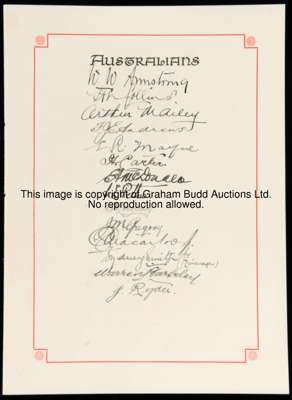 AUSTRALIANS
W W Armstrong
Arthur Mailey
T J E Andrews
E R Mayne
H Carter
This image is copyright of Graham Budd Auctions Ltd.
No reproduction allowed.
Gregory
C G Macartney
Sydney Smith
(Manager)
Warren Bardsley
J. Ryder